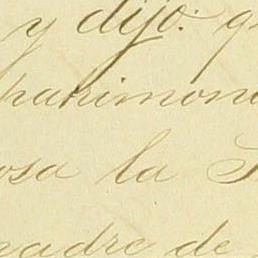 y dijo: q
patrimon
osa la S
madre de